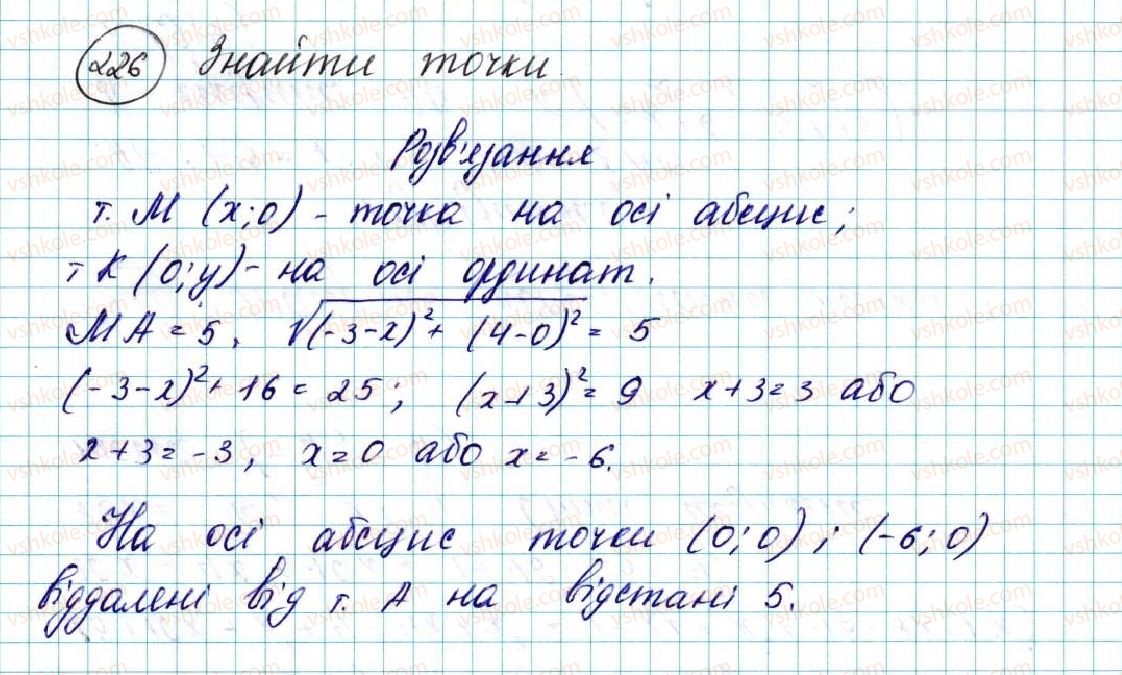 226 Знайти точки
Розв'язання
т. М (х; 0) - точка на осі абсцис;
т К (0; у) - на осі ординат.
МА = 5, √(-3-х)² + (4-0)² = 5
(-3-х)² + 16 = 25; (х+3)² = 9 х+3=3 або
х+3=-3, х=0 або х=-6.
На осі абсцис точки (0; 0); (-6; 0)
віддалені від т. А на відстані 5.